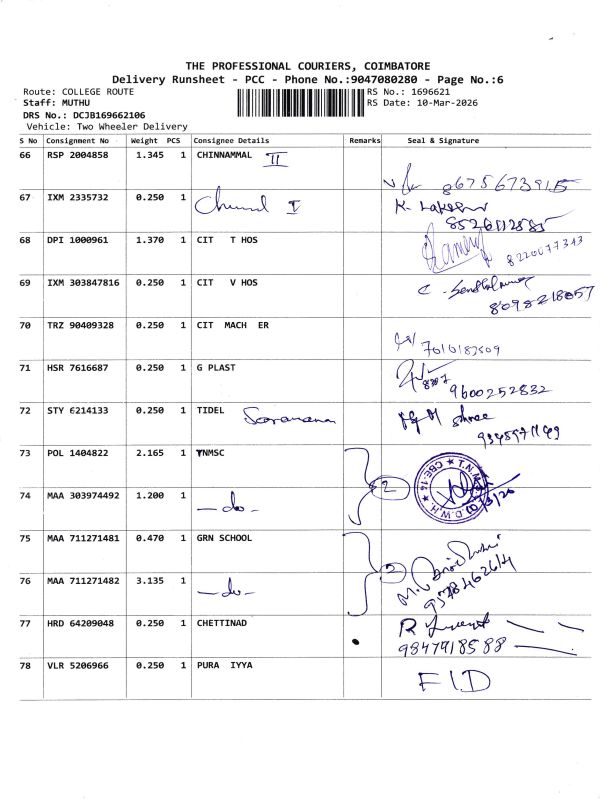 THE PROFESSIONAL COURIERS, COIMBATORE
Delivery Runsheet - PCC - Phone No.:9047080280 - Page No.:6
Route: COLLEGE ROUTE RS No.: 1696621
Staff: MUTHU RS Date: 10-Mar-2026
DRS No.: DCJB169662106
Vehicle: Two Wheeler Delivery
S No Consignment No Weight PCS Consignee Details Remarks Seal & Signature
66 RSP 2004858 1.345 1 CHINNAMMAL II
8675673915
67 IXM 2335732 0.250 1 I
8526112885
68 DPI 1000961 1.370 1 CIT T HOS
8220077343
69 IXM 303847816 0.250 1 CIT V HOS
8098218057
70 TRZ 90409328 0.250 1 CIT MACH ER
7010183509
71 HSR 7616687 0.250 1 G PLAST
9600252832
72 STY 6214133 0.250 1 TIDEL Saravanan
shree
73 POL 1404822 2.165 1 TNMSC
2
74 MAA 303974492 1.200 1 -do-
75 MAA 711271481 0.470 1 GRN SCHOOL
2
76 MAA 711271482 3.135 1 -do-
9578462614
77 HRD 64209048 0.250 1 CHETTINAD R
9847918588
78 VLR 5206966 0.250 1 PURA IYYA FID